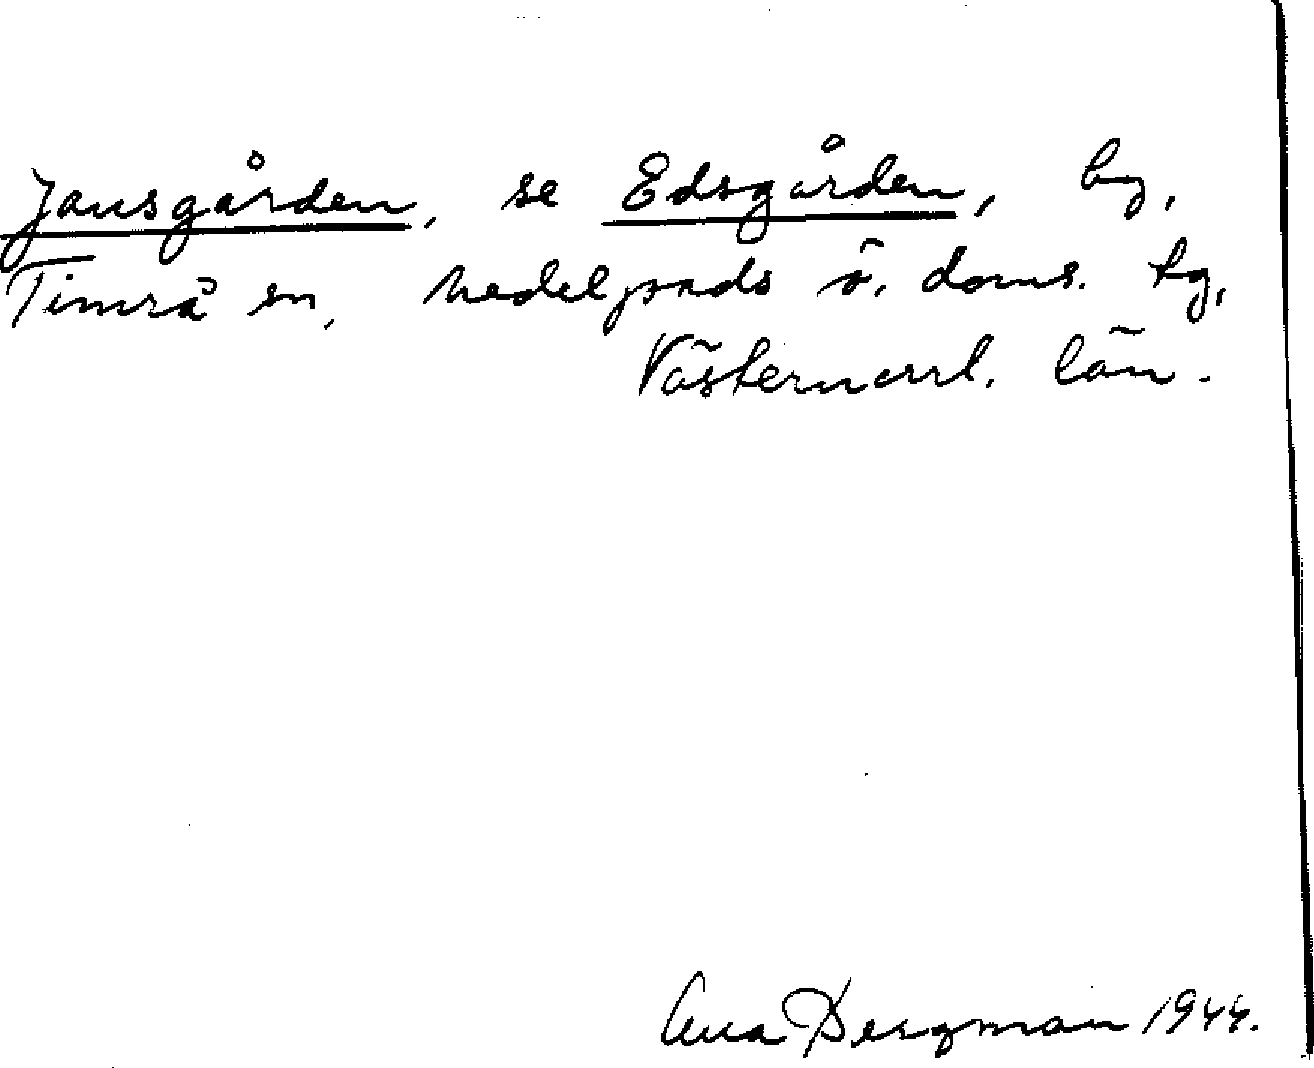 Jansgården, se Edsgården, by,
Timrå sn, Medelpads ö. doms. tg,
Västernorrl. län.
Eva Bergman 1944.